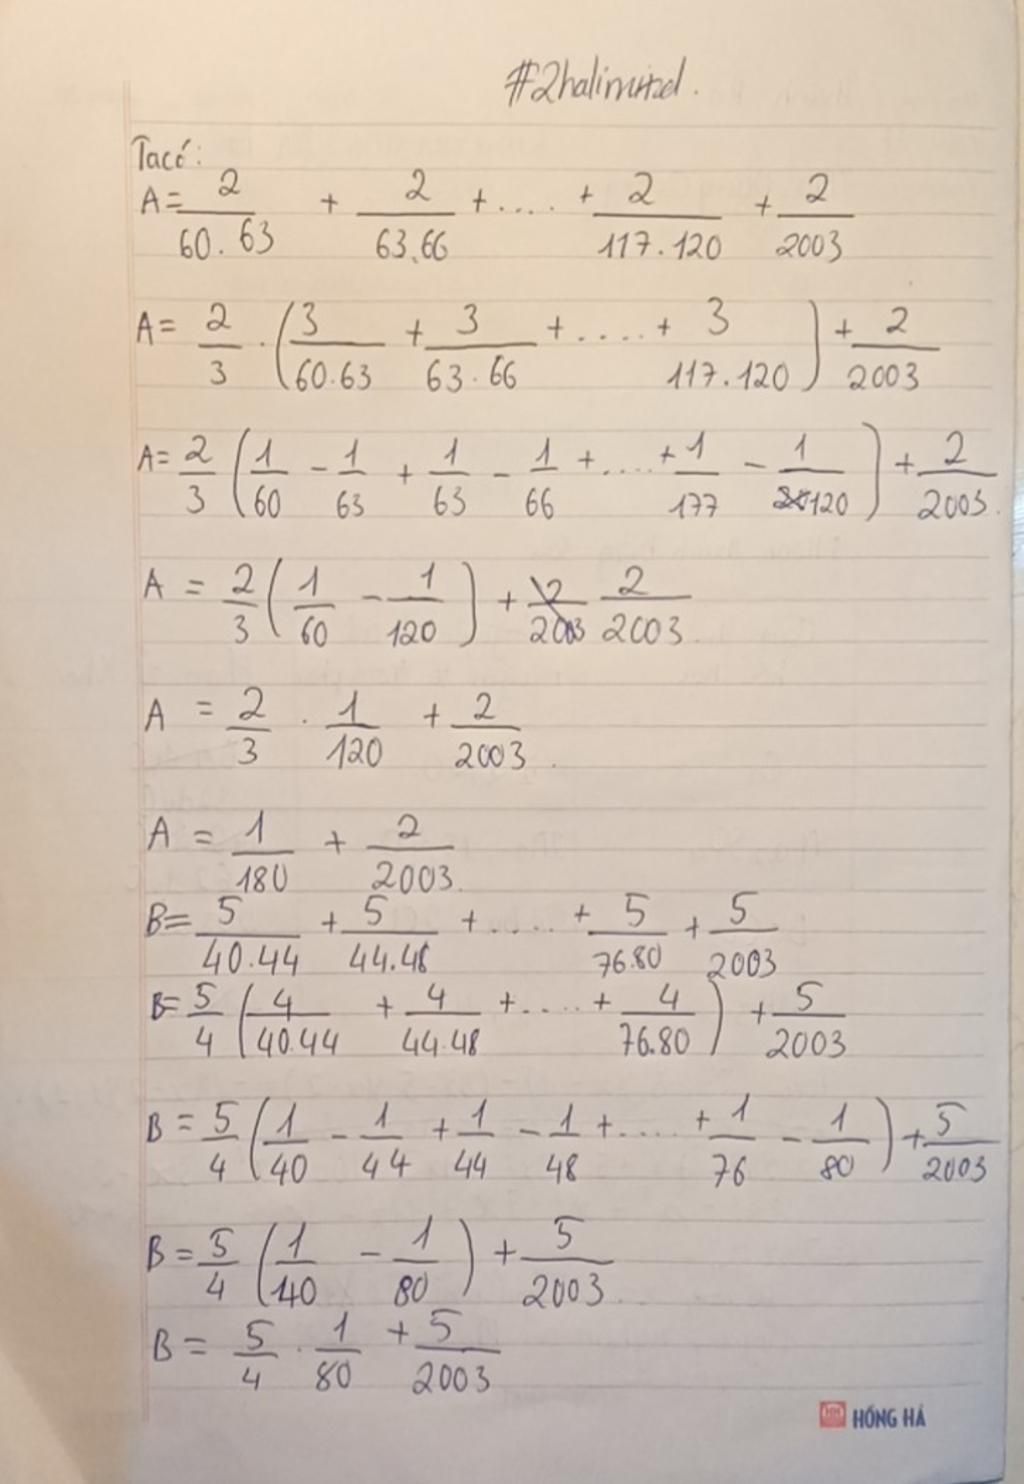 #2halimited.
Ta có:
A = 2/60.63 + 2/63.66 + .... + 2/117.120 + 2/2003
A = 2/3 . (3/60.63 + 3/63.66 + .... + 3/117.120) + 2/2003
A = 2/3 (1/60 - 1/63 + 1/63 - 1/66 + .... + 1/177 - 1/120) + 2/2003.
A = 2/3 (1/60 - 1/120) + 2/2003 2/2003.
A = 2/3 . 1/120 + 2/2003.
A = 1/180 + 2/2003.
B = 5/40.44 + 5/44.48 + .... + 5/76.80 + 5/2003
B = 5/4 (4/40.44 + 4/44.48 + .... + 4/76.80) + 5/2003
B = 5/4 (1/40 - 1/44 + 1/44 - 1/48 + .... + 1/76 - 1/80) + 5/2003
B = 5/4 (1/40 - 1/80) + 5/2003.
B = 5/4 . 1/80 + 5/2003
HH HỒNG HÀ